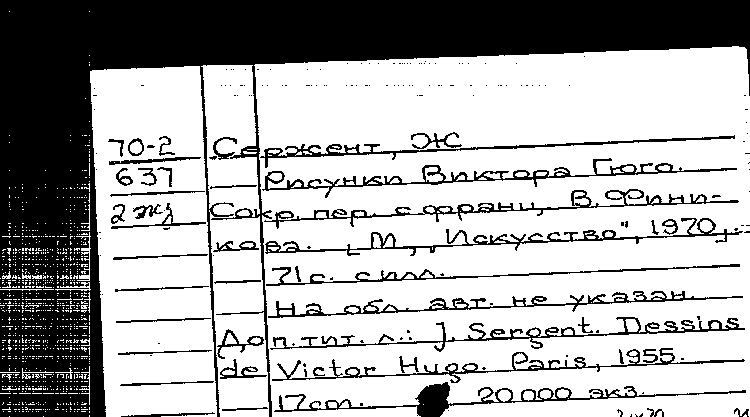 70-2 Сержент, Ж
637 Рисунки Виктора Гюго.
2 экз Сокр. пер. с франц. В. Финни-
кова. [М., „Искусство", 1970].
71 с. с илл.
На обл. авт. не указан.
Доп. тит. л.: J. Sergent. Dessins
de Victor Hugo. Paris, 1955.
17 cm. 20000 экз.